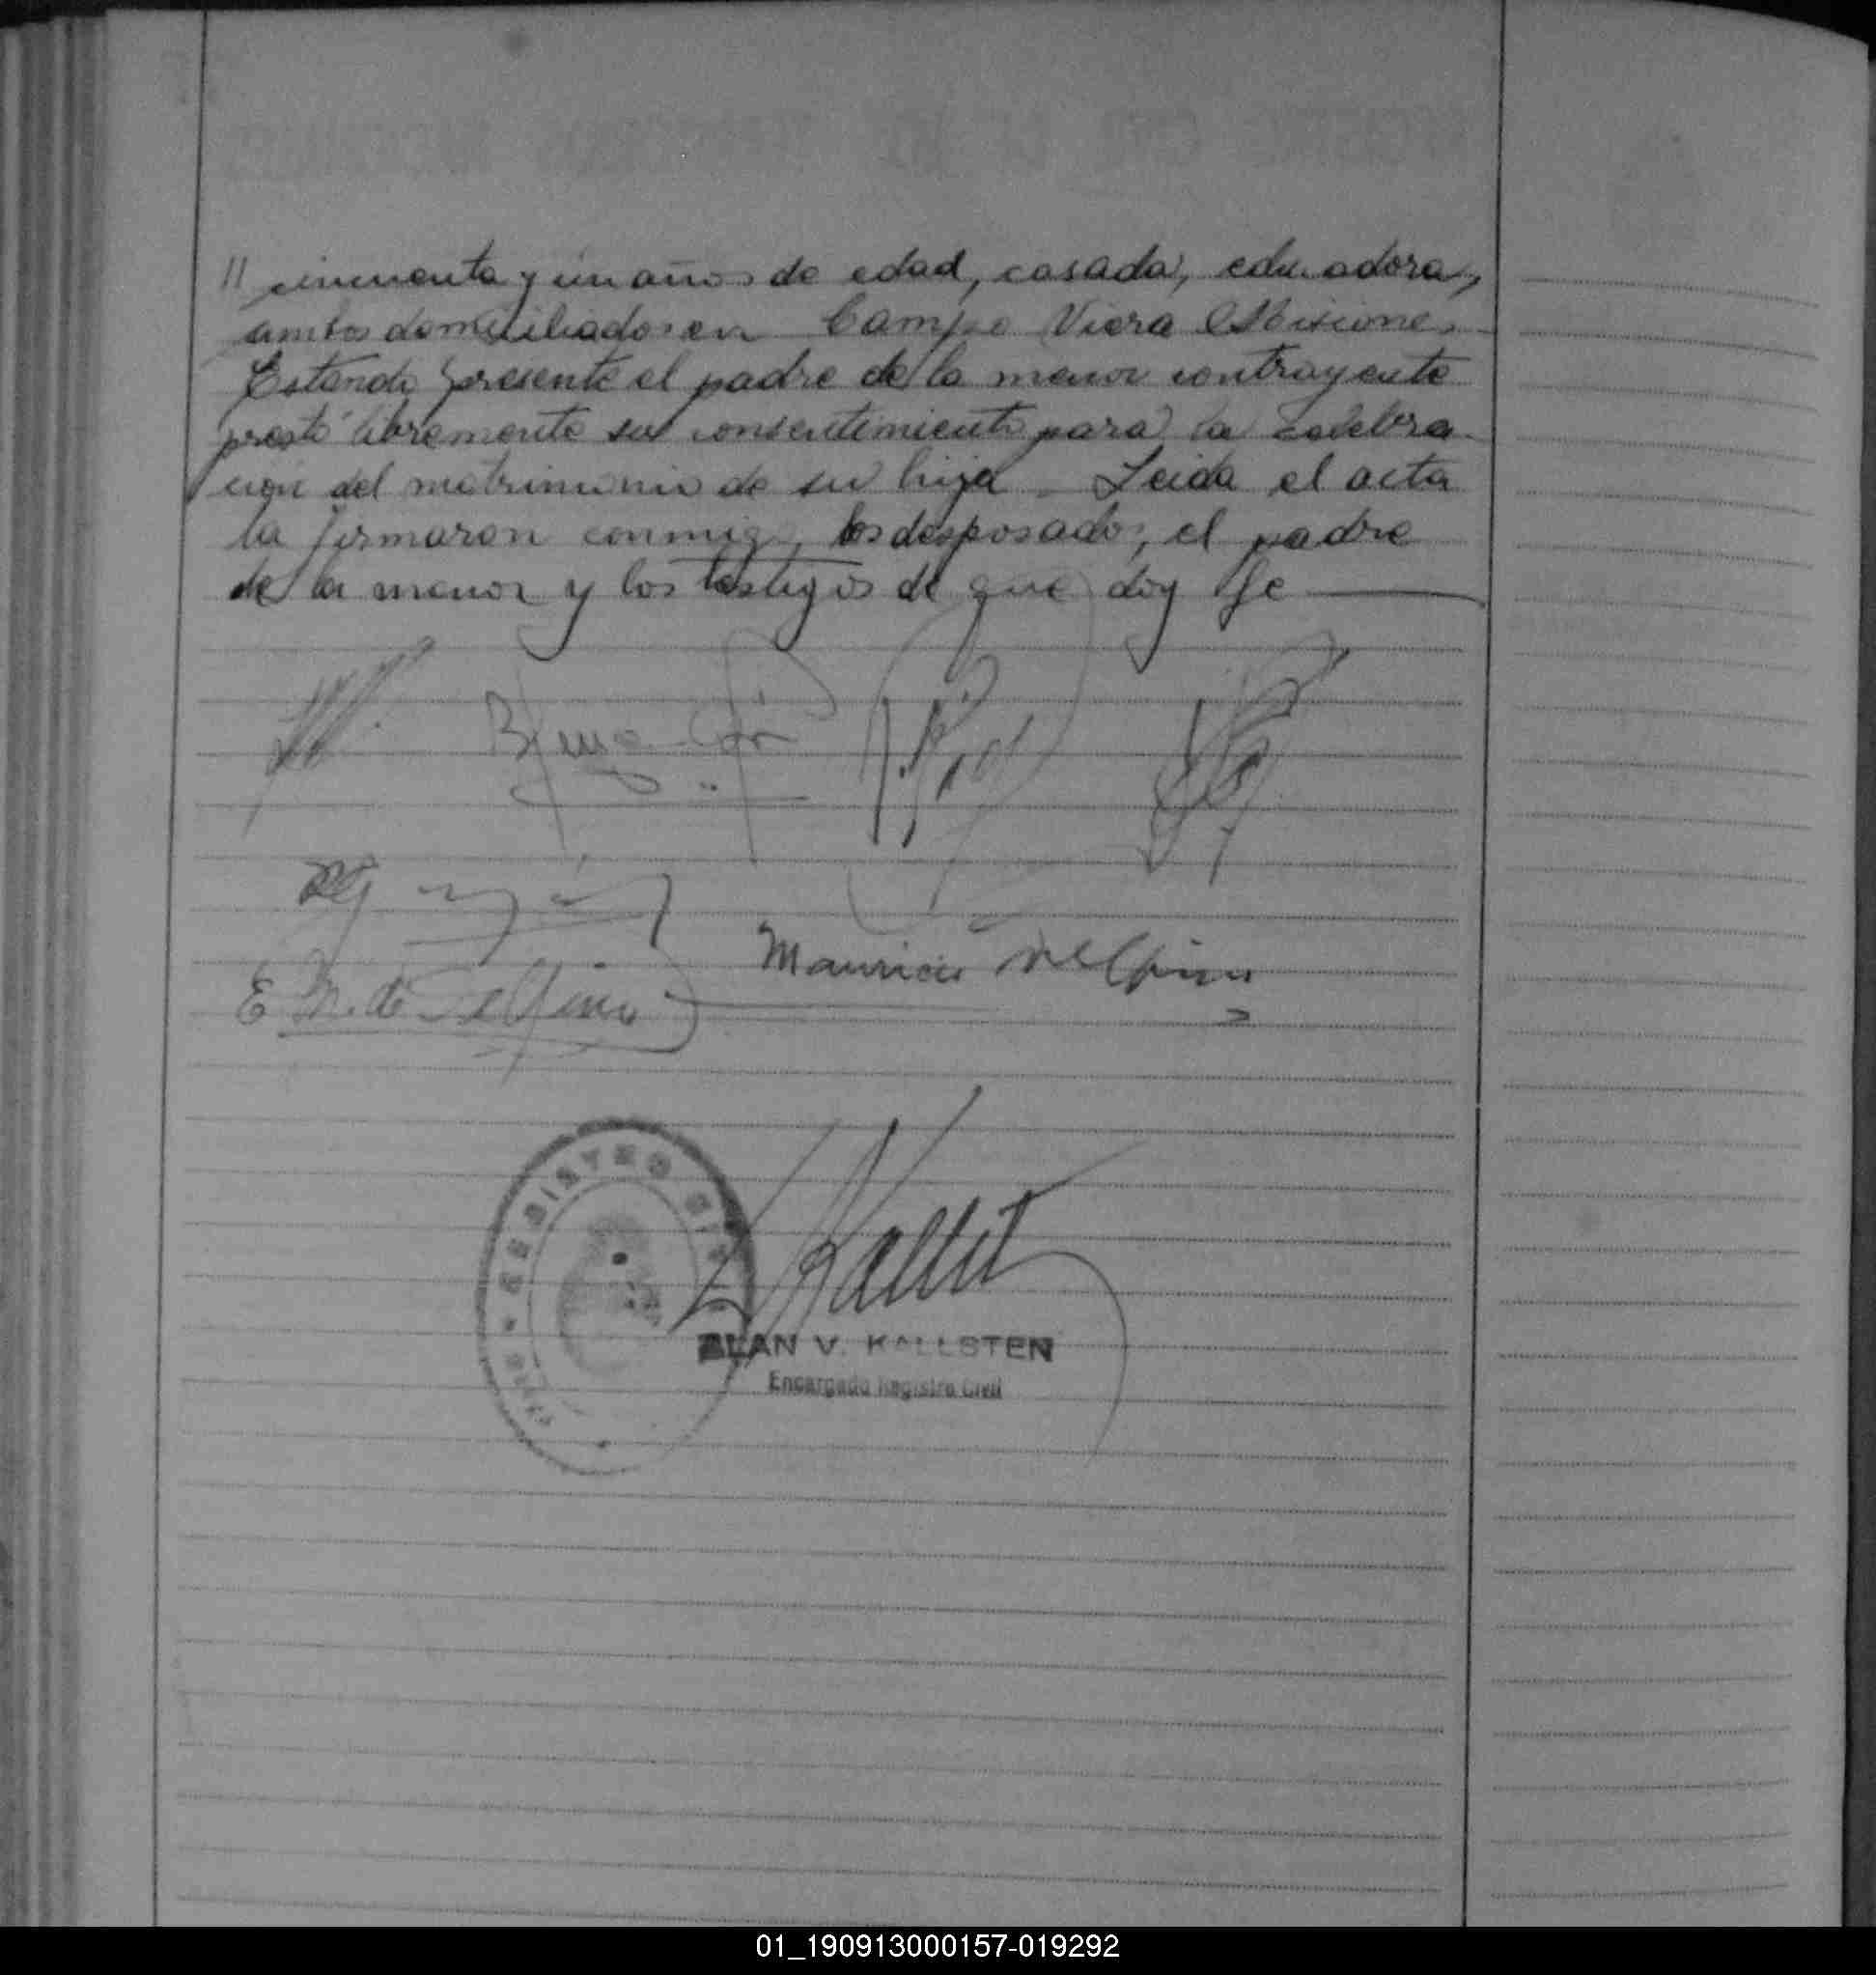 // cincuenta y un años de edad, casada, educadora,
ambos domiciliados en Campo Viera Misiones.
Estando presente el padre de la menor contrayente
prestó libremente su consentimiento para la celebra-
ción del matrimonio de su hija. Leida el acta
la firmaron conmigo, los desposados, el padre
de la menor y los testigos de que doy fe
Mauricio Delpino
E de Delpino
REGISTRO
ALAN V. KALLSTEN
Encargado Registro Civil
01_190913000157-019292